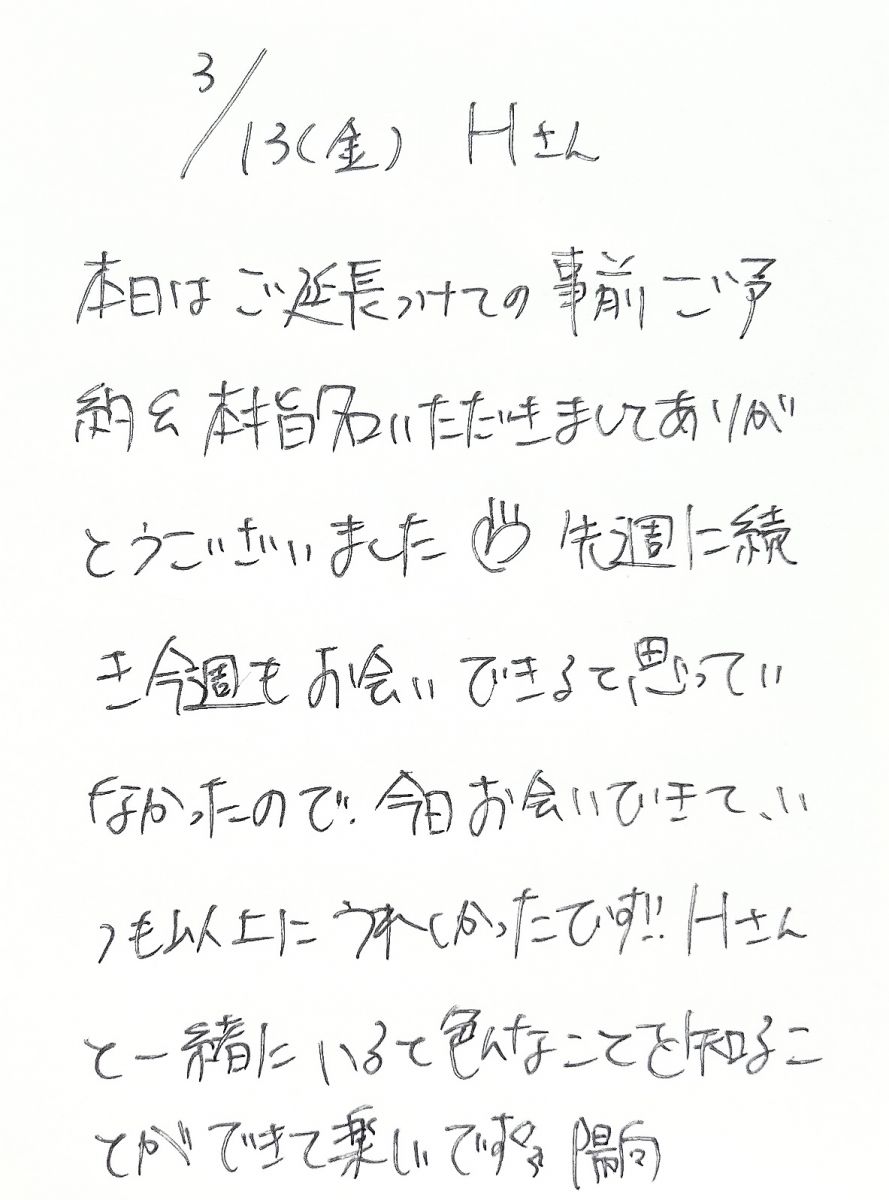 3/13(金) Hさん
本日は ご延長つけての 事前 ご予
約& 本指名いただきましてありが
とうございました 先週に続
き今週も お会い できると思ってい
なかったので、今日お会いできて、い
つも以上に うれしかったです!! Hさん
と一緒に いると色んなことを知るこ
とが できて楽しいです 陽向